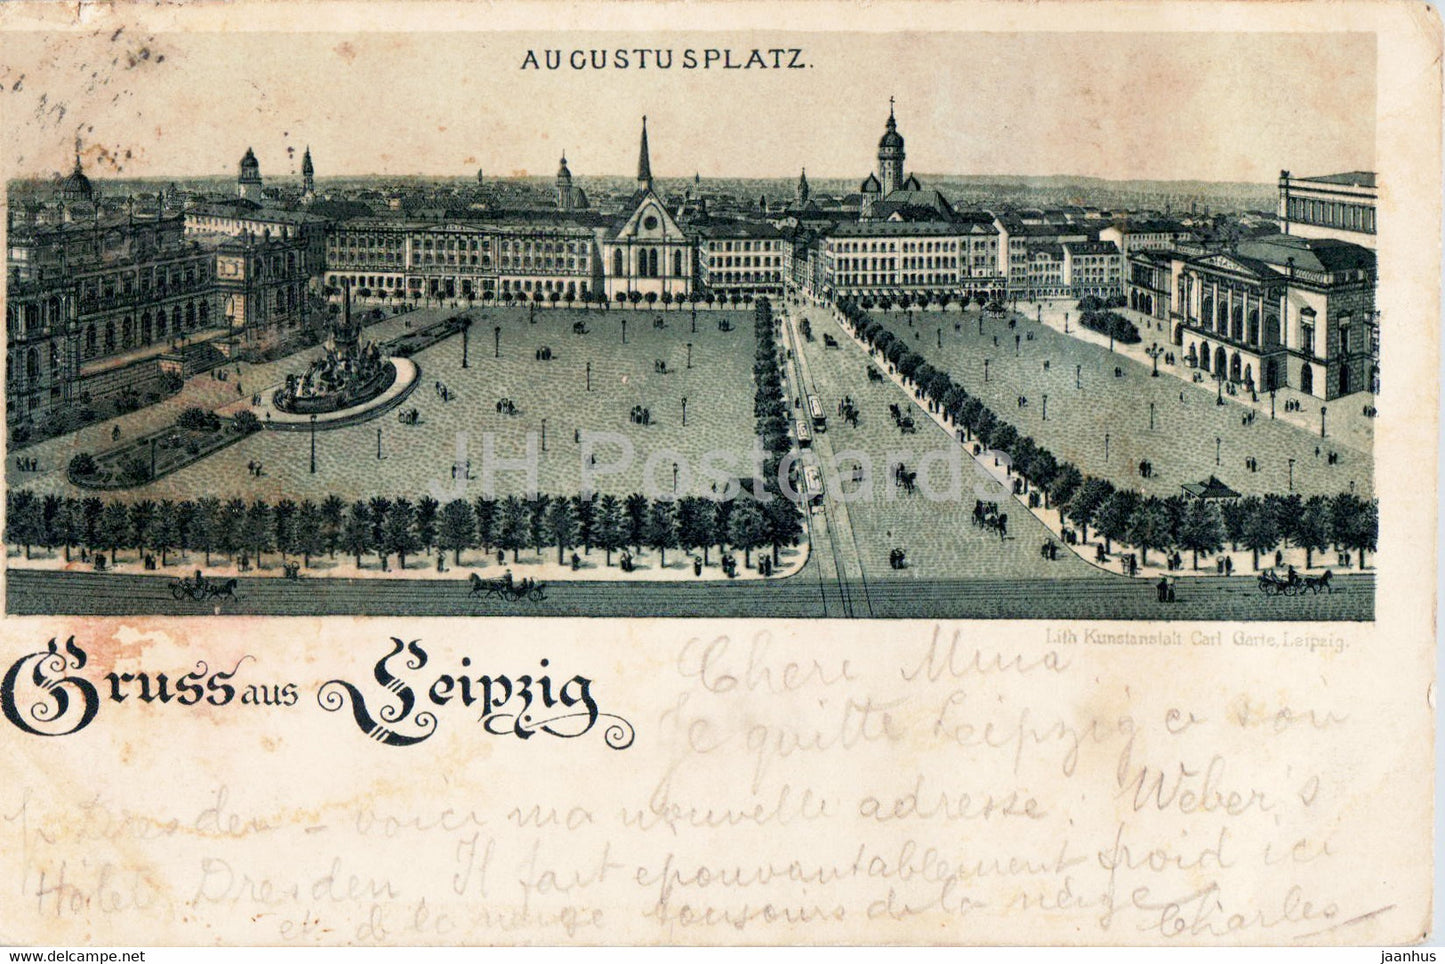 AUGUSTUSPLATZ.
Lith Kunstanstalt Carl Garte, Leipzig.
Gruss aus Leipzig
Chere Mina
Je quitte Leipzig ce soir
p. Dresden - voici ma nouvelle adresse: Weber's
Hôtel Dresden. Il fait epouvantablement froid ici
et de la neige toujours de la neige
Charles
JH Postcards
www.hippostcard.com
jaanhus